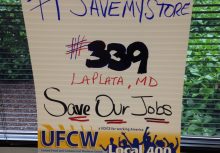 #SAVEMYSTORE
#339
LAPLATA, MD
Save Our Jobs
UFCW
a VOICE for working America
Local 400